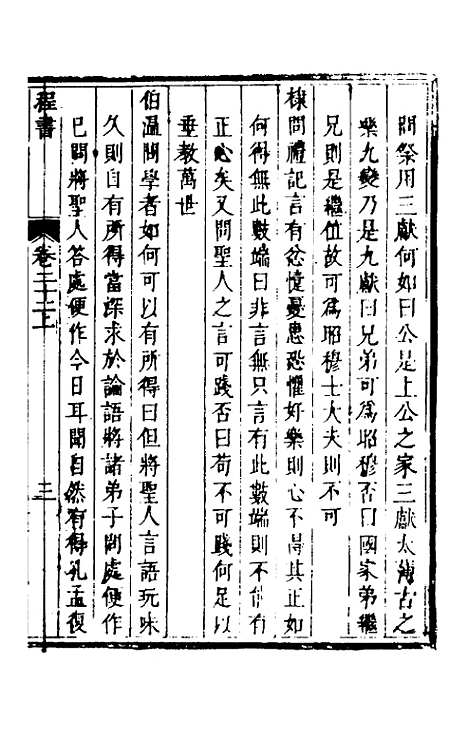 問祭用三獻何如曰公是上公之家三獻太薄古之
樂九變乃是九獻曰兄弟可爲昭穆否曰國家弟繼
兄則是繼位故可爲昭穆士大夫則不可
棣問禮記言有忿懥憂患恐懼好樂則心不得其正如
何得無此數端曰非言無只言有此數端則不能有
正心矣又問聖人之言可踐否曰苟不可踐何足以
垂教萬世
伯温問學者如何可以有所得曰但將聖人言語玩味
久則自有所得當深求於論語將諸弟子問處便作
已問將聖人答處便作今日耳聞自然有得孔孟復
程書
卷二十二上
三